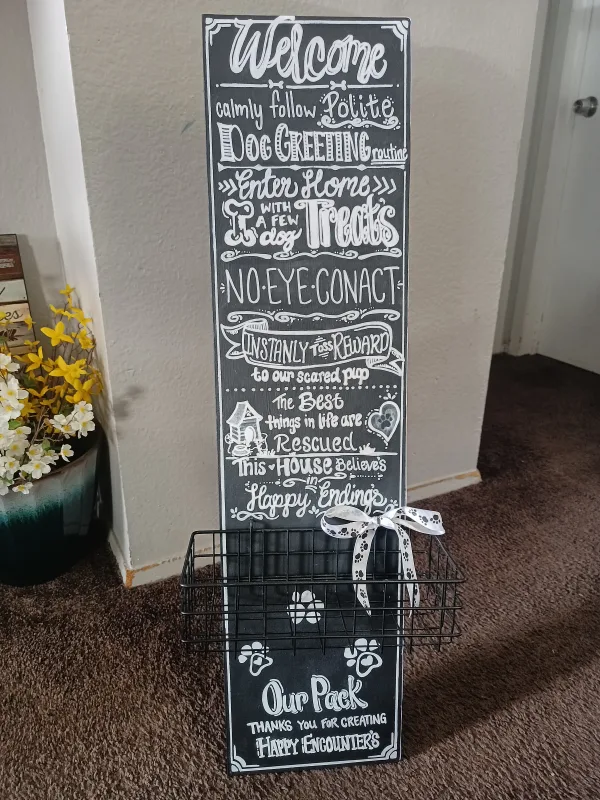 Welcome
calmly follow Polite
DOG GREETING routine
Enter Home
WITH
A FEW
dog Treats
NO·EYE·CONACT
INSTANLY Toss REWARD
to our scared pup
The Best
things in life are
Rescued
This House Believe's
in
Happy Ending's
Our Pack
THANKS YOU FOR CREATING
HAPPY ENCOUNTER'S